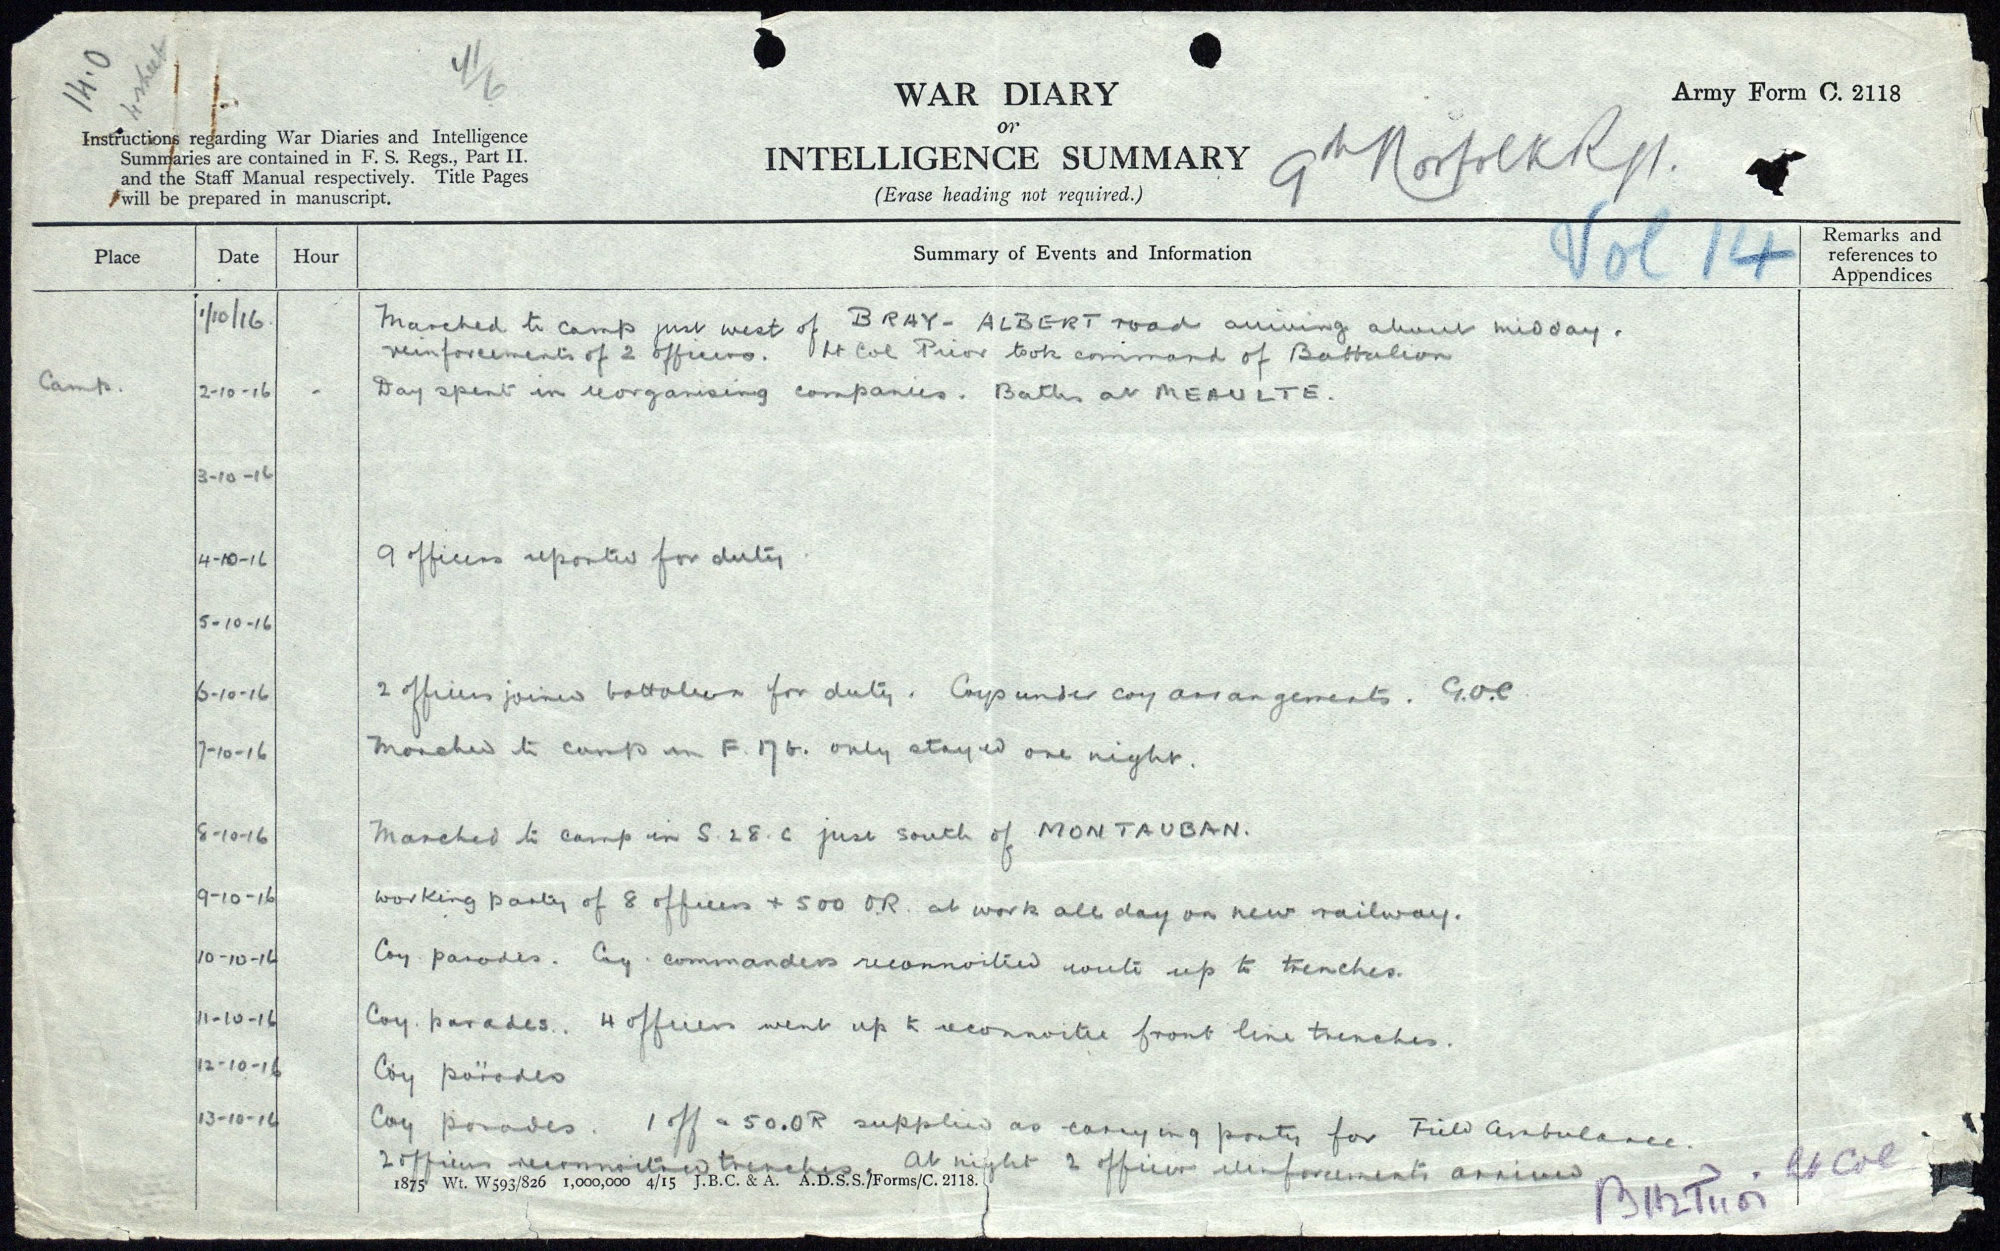 14.0
4 sheets
11/6
WAR DIARY
or
INTELLIGENCE SUMMARY
(Erase heading not required.)
Army Form C. 2118
9th Norfolk Rgt.
Vol 14
Instructions regarding War Diaries and Intelligence
Summaries are contained in F. S. Regs., Part II.
and the Staff Manual respectively. Title Pages
will be prepared in manuscript.
Place Date Hour Summary of Events and Information Remarks and
references to
Appendices
1/10/16 Marched to camp just west of BRAY - ALBERT road arriving about midday.
reinforcements of 2 officers. Lt Col Prior took command of Battalion
Camp. 2-10-16 - Day spent in reorganising companies. Baths at MEAULTE.
3-10-16
4-10-16 9 officers reported for duty
5-10-16
6-10-16 2 officers joined battalion for duty. Coys under coy arrangements. G.O.C
7-10-16 Marched to camp in F.17b. only stayed one night.
8-10-16 Marched to camp in S.28.c just south of MONTAUBAN.
9-10-16 working party of 8 officers + 500 O.R. at work all day on new railway.
10-10-16 Coy parades. Coy commanders reconnoitred route up to trenches.
11-10-16 Coy parades. 4 officers went up to reconnoitre front line trenches.
12-10-16 Coy parades
13-10-16 Coy parades. 1 off & 50.OR supplied as carrying party for Field Ambulance.
2 officers reconnoitred trenches. At night 2 officer reinforcements arrived
1875 Wt. W593/826 1,000,000 4/15 J.B.C. & A. A.D.S.S./Forms/C. 2118.
Prior Lt Col